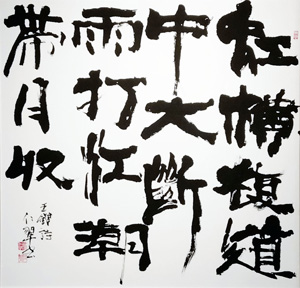 虹橫複道
中天斷
雨打江潮
帶月收
王鐸詩